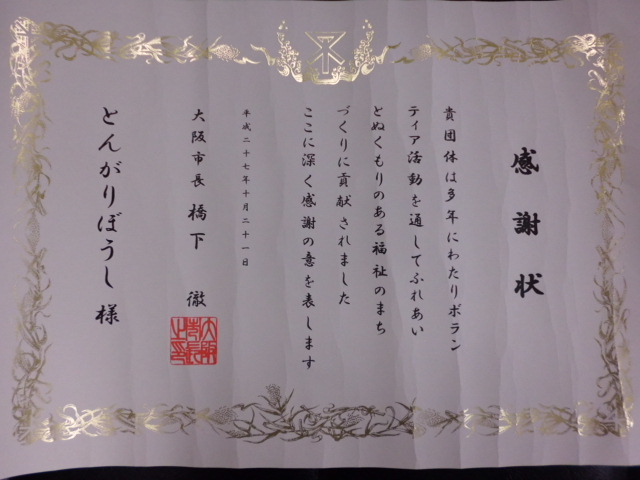 感謝状
貴団体は多年にわたりボラン
ティア活動を通してふれあい
とぬくもりのある福祉のまち
づくりに貢献されました
ここに深く感謝の意を表します
平成二十七年十月二十一日
大阪市長 橋下 徹
大阪市長之印
とんがりぼうし 様